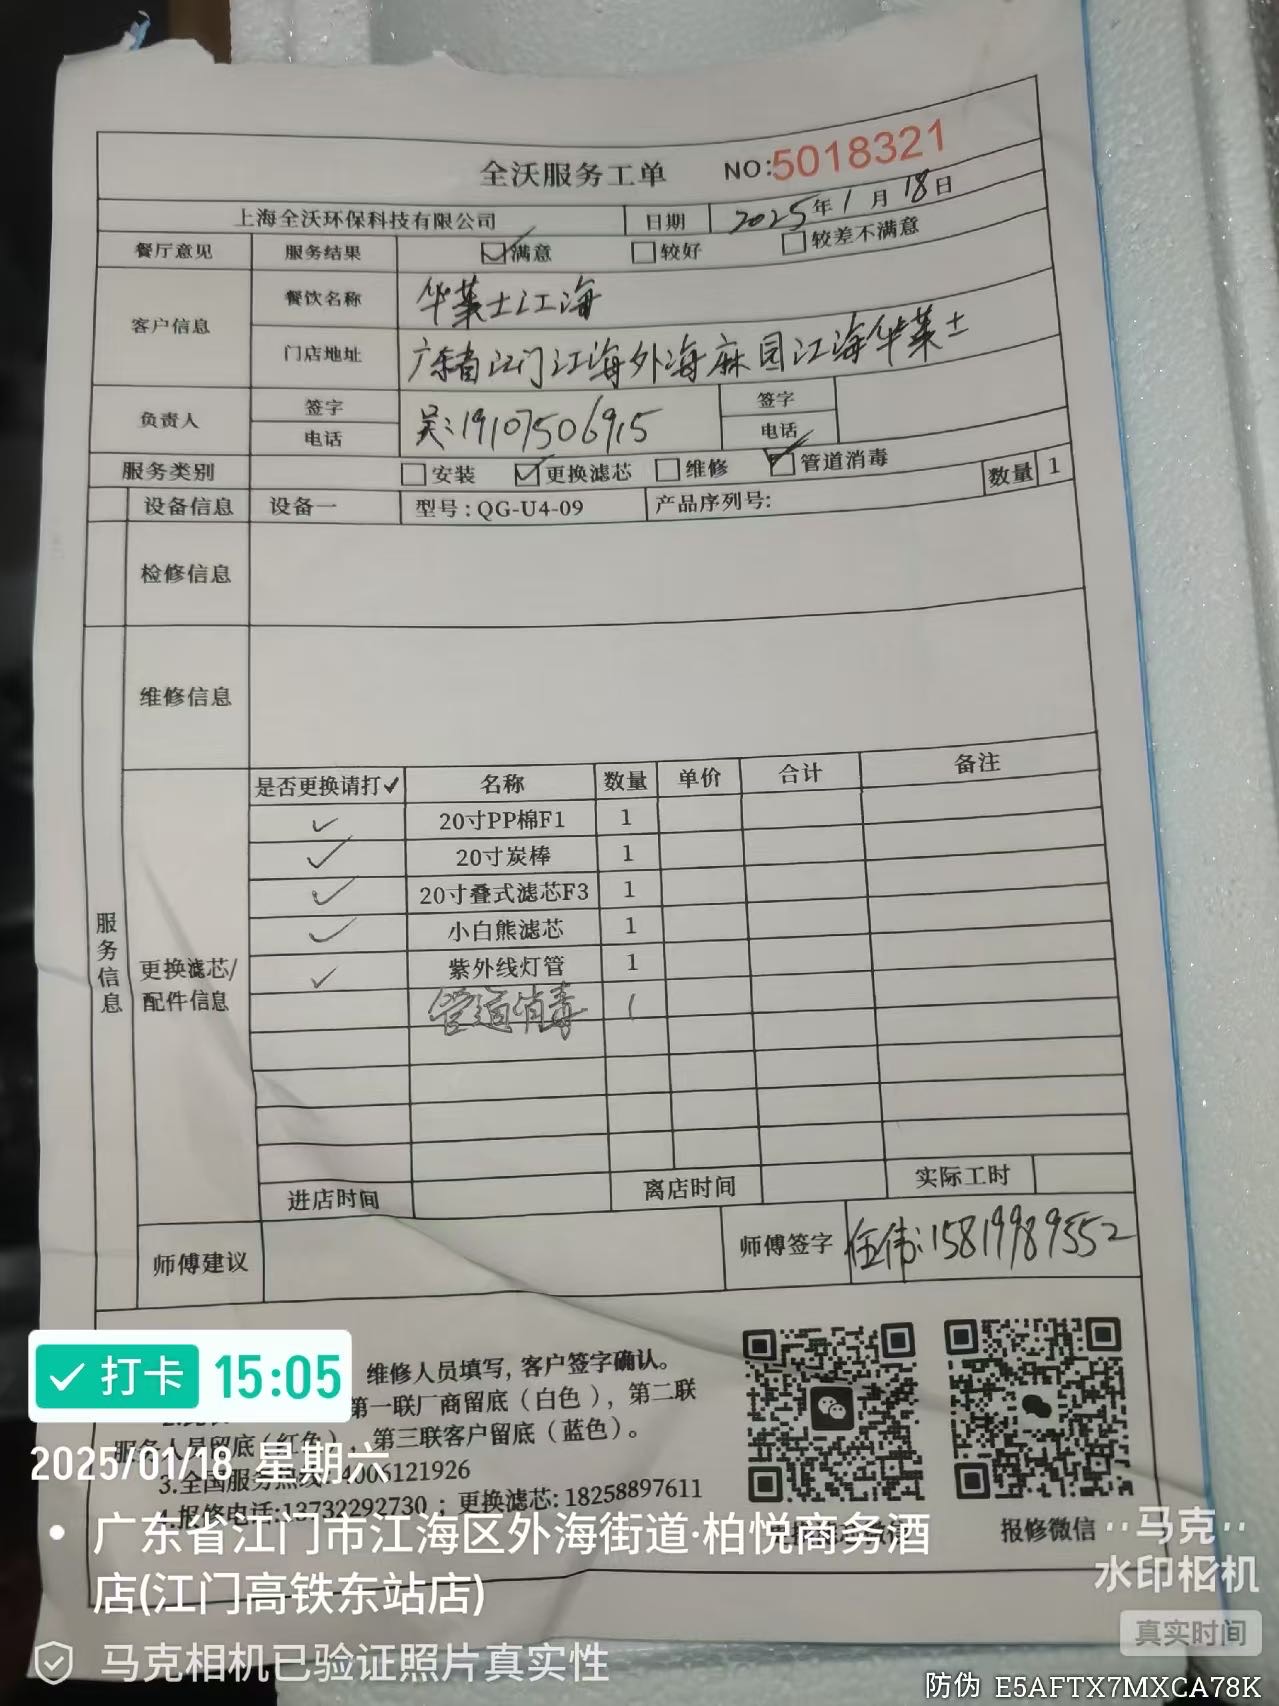 全沃服务工单 NO:5018321
上海全沃环保科技有限公司 日期 2025年1月18日
餐厅意见 服务结果 满意 较好 较差不满意
客户信息 餐饮名称 华莱士江海
门店地址 广东省江门江海外海麻园江海华莱士
负责人 签字 吴:19107506915 签字
电话 电话
服务类别 安装 更换滤芯 维修 管道消毒
设备信息 设备一 型号:QG-U4-09 产品序列号: 数量 1
检修信息
维修信息
服务信息
更换滤芯/
配件信息
是否更换请打✓ 名称 数量 单价 合计 备注
✓ 20寸PP棉F1 1
✓ 20寸炭棒 1
✓ 20寸叠式滤芯F3 1
✓ 小白熊滤芯 1
✓ 紫外线灯管 1
管道消毒 1
进店时间 离店时间 实际工时
师傅建议 师傅签字 任伟:15819989552
维修人员填写,客户签字确认。
第一联厂商留底(白色),第二联
服务人员留底(红色),第三联客户留底(蓝色)。
3.全国服务热线:4006121926
4.报修电话:13732292730;更换滤芯:18258897611
报修微信
打卡 15:05
2025/01/18 星期六
广东省江门市江海区外海街道·柏悦商务酒
店(江门高铁东站店)
马克相机已验证照片真实性
马克
水印相机
真实时间
防伪 E5AFTX7MXCA78K